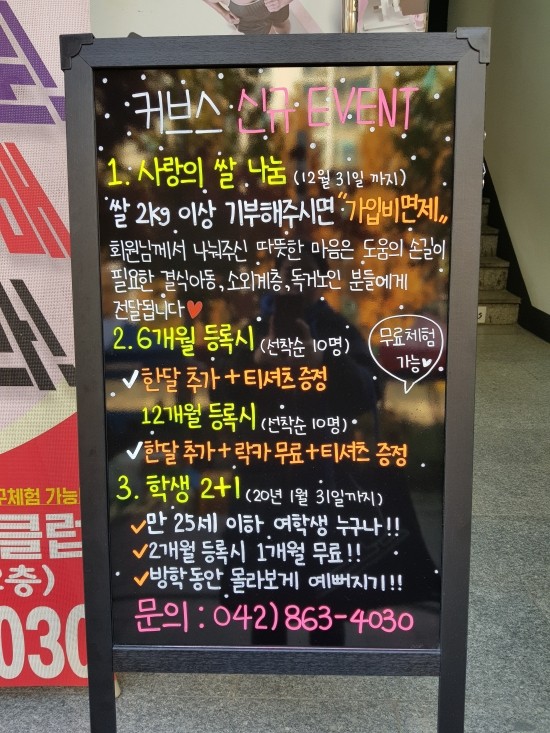 커브스 신규 EVENT
1. 사랑의 쌀 나눔 (12월 31일 까지)
쌀 2kg 이상 기부해주시면 "가입비면제"
회원님께서 나눠주신 따뜻한 마음은 도움의 손길이
필요한 결식아동, 소외계층, 독거노인 분들에게
전달됩니다♥
2. 6개월 등록시 (선착순 10명)
무료체험
가능♥
✓한달 추가 + 티셔츠 증정
12개월 등록시 (선착순 10명)
✓한달 추가 + 락카 무료 + 티셔츠 증정
3. 학생 2+1 (20년 1월 31일까지)
✓만 25세 이하 여학생 누구나!!
✓2개월 등록시 1개월 무료!!
✓방학동안 몰라보게 예뻐지기!!
문의 : 042) 863-4030
구체험 가능
클럽
층)
030